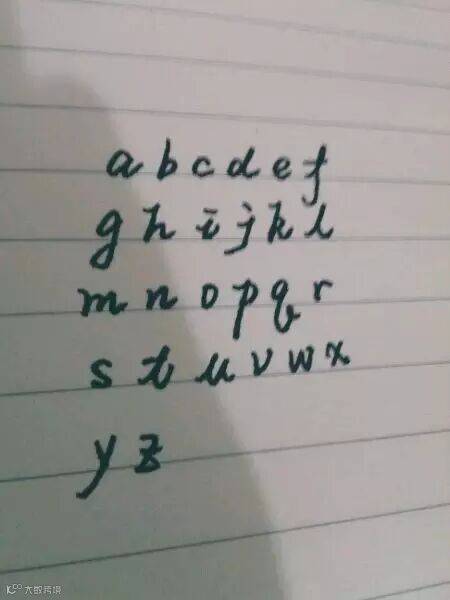 a b c d e f
g h i j k l
m n o p q r
s t u v w x
y z
大数跨境